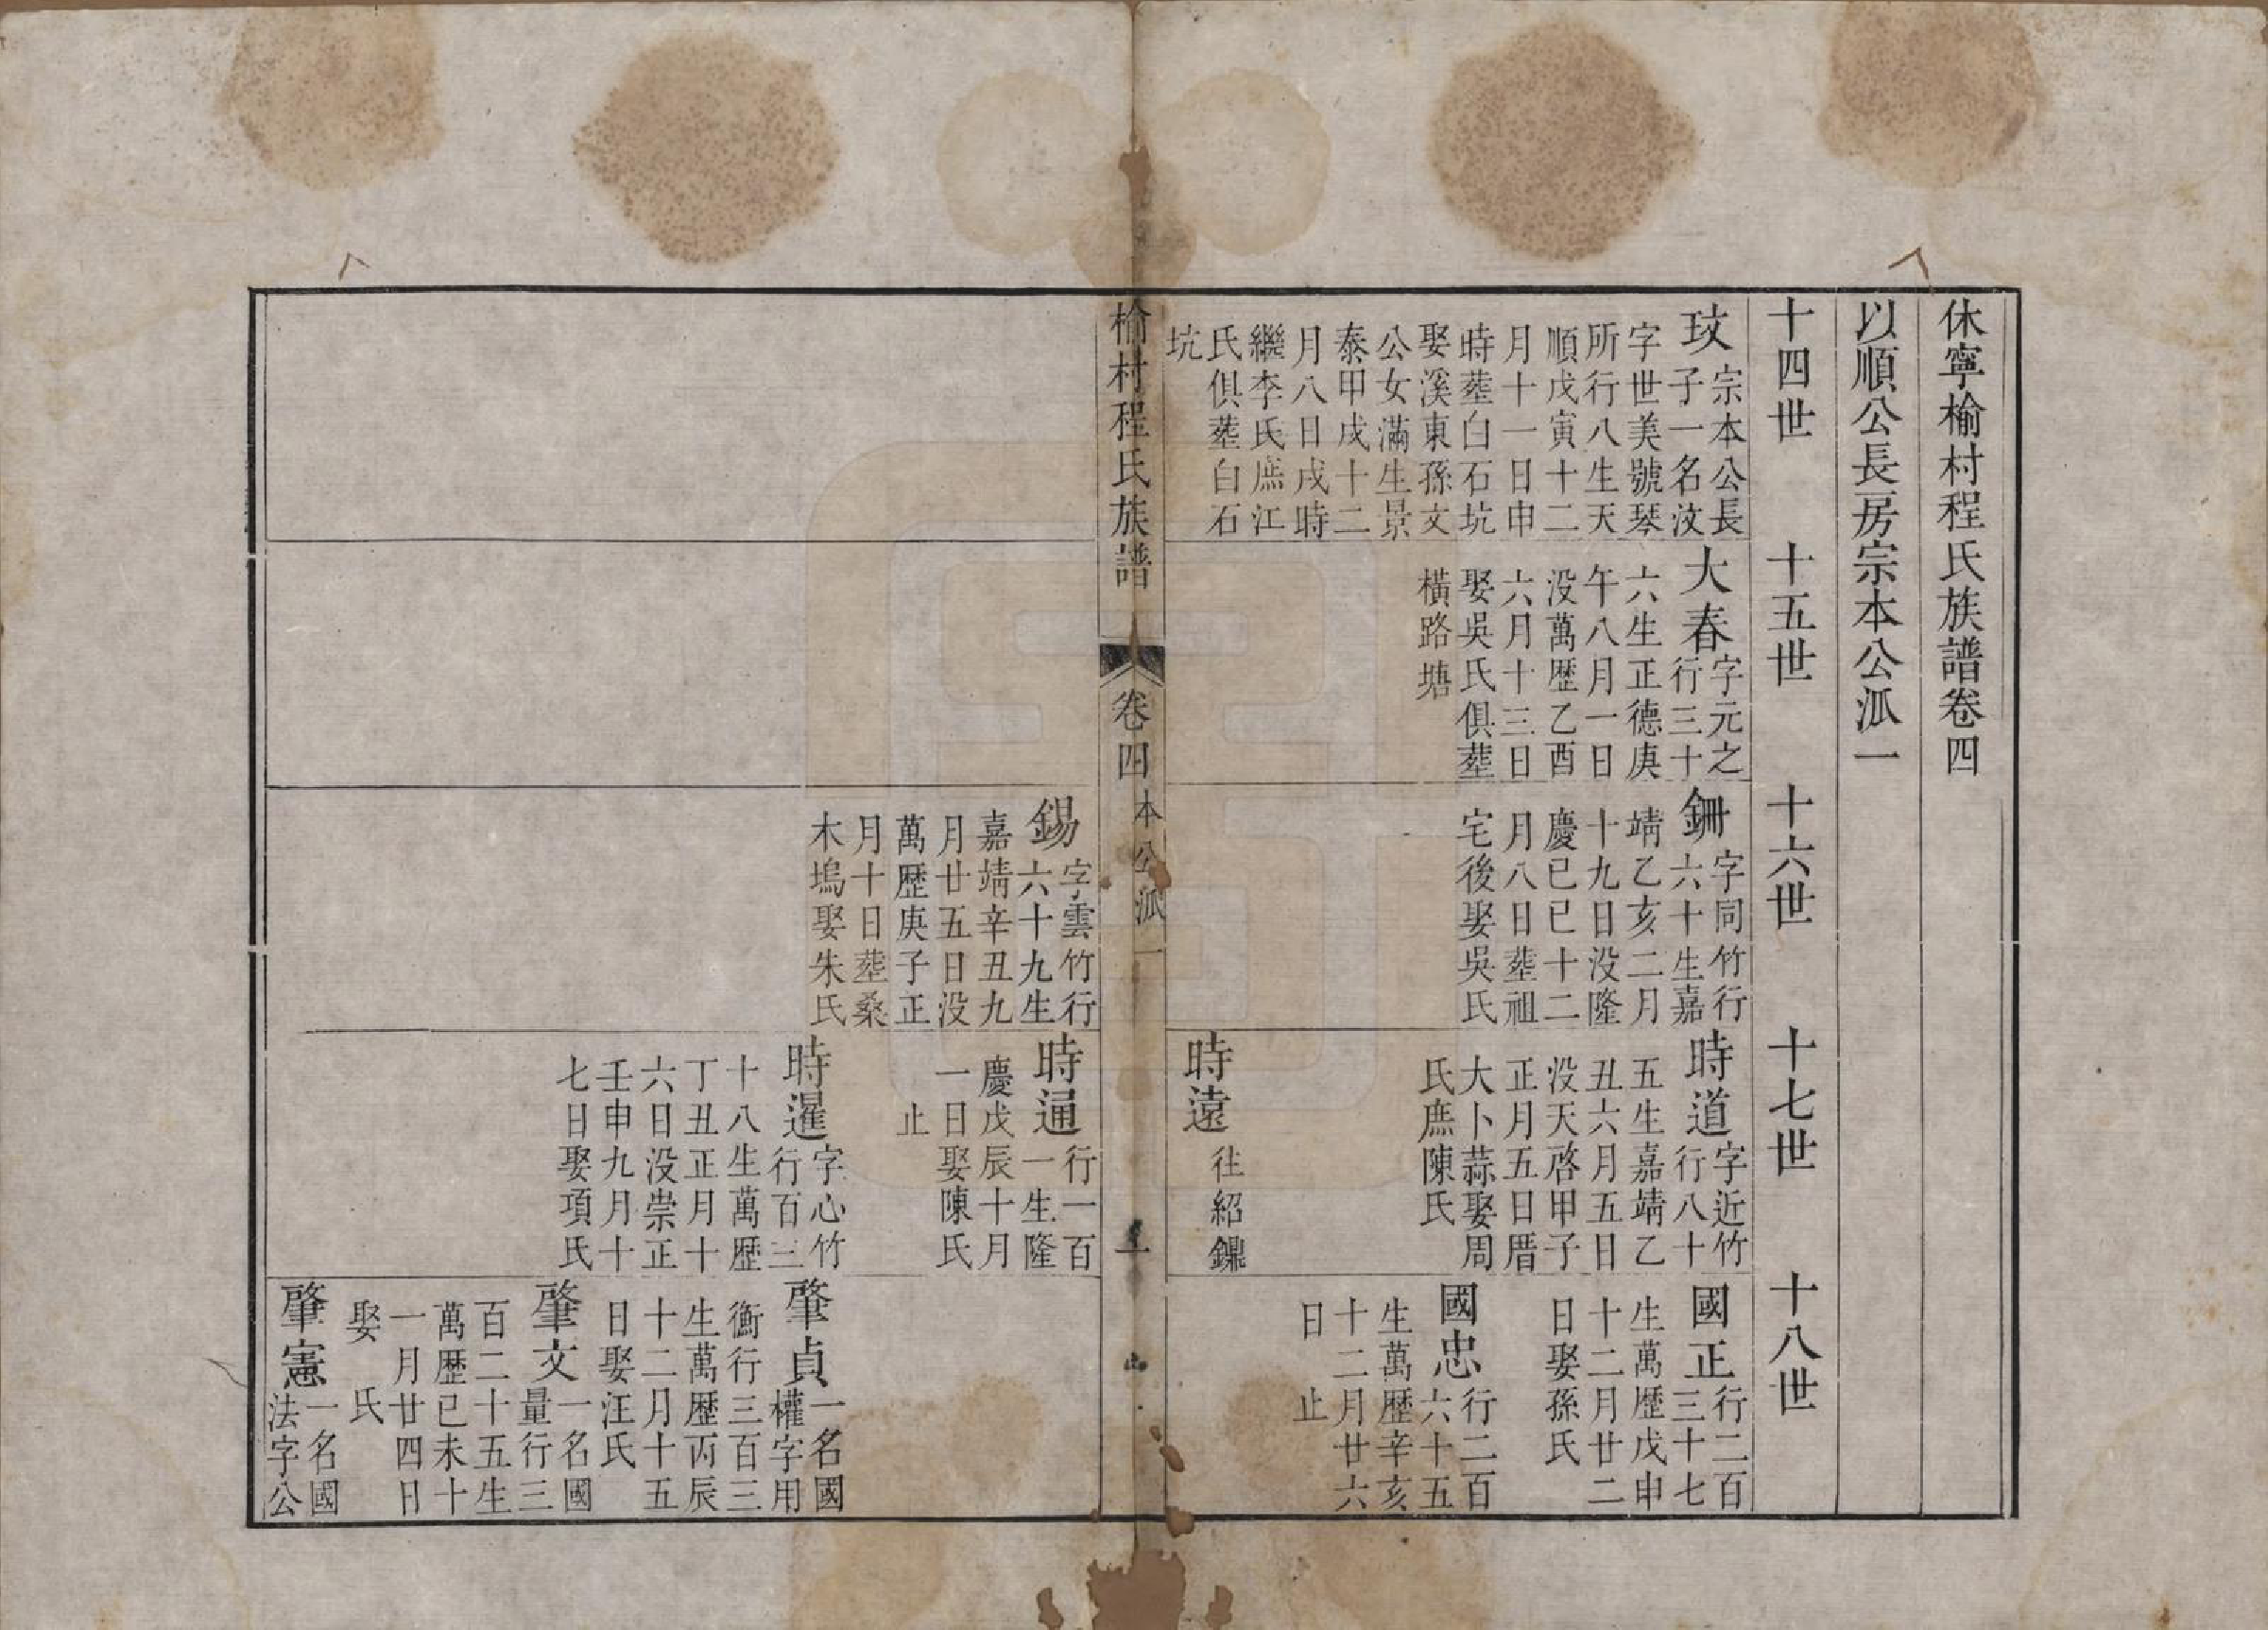 休寧榆村程氏族譜卷四
以順公長房宗本公派一
十四世
十五世
十六世
十七世
十八世
玟
宗本公長
子一名汶
字世美號琴
所行八生天
順戊寅十二
月十一日申
時塟白石坑
娶溪東孫文
公女滿生景
泰甲戌十二
月八日戌時
繼李氏庶江
氏俱塟白石
坑
大春
字元之
行三十
六生正德庚
午八月一日
没萬歷乙酉
六月十三日
娶吳氏俱塟
橫路塘
鈿
字同竹行
六十生嘉
靖乙亥二月
十九日没隆
慶己巳十二
月八日塟祖
宅後娶吳氏
時道
字近竹
行八十
五生嘉靖乙
丑六月五日
没天啓甲子
正月五日厝
大卜蒜娶周
氏庶陳氏
國正
行二百
三十七
生萬歷戊申
十二月廿二
日娶孫氏
國忠
行二百
六十五
生萬歷辛亥
十二月廿六
日止
時遠
往紹鏁
榆村程氏族譜
卷四
本公派一
一
錫
字雲竹行
六十九生
嘉靖辛丑九
月廿五日没
萬歷庚子正
月十日塟桑
木塢娶朱氏
時通
行一百
一生隆
慶戊辰十月
一日娶陳氏
止
時暹
字心竹
行百三
十八生萬歷
丁丑正月十
六日没崇正
壬申九月十
七日娶項氏
肇貞
一名國
權字用
衡行三百三
生萬歷丙辰
十二月十五
日娶汪氏
肇文
一名國
量行三
百二十五生
萬歷己未十
一月廿四日
娶 氏
肇憲
一名國
法字公